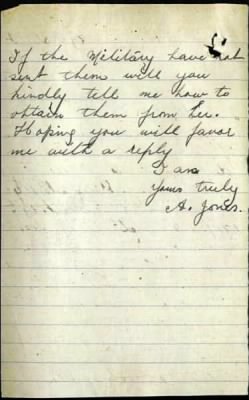 If the Military have not
sent them will you
kindly tell me how to
obtain them from
Hoping you will favor
me with a reply
I am
Yours truly
A. Jones.